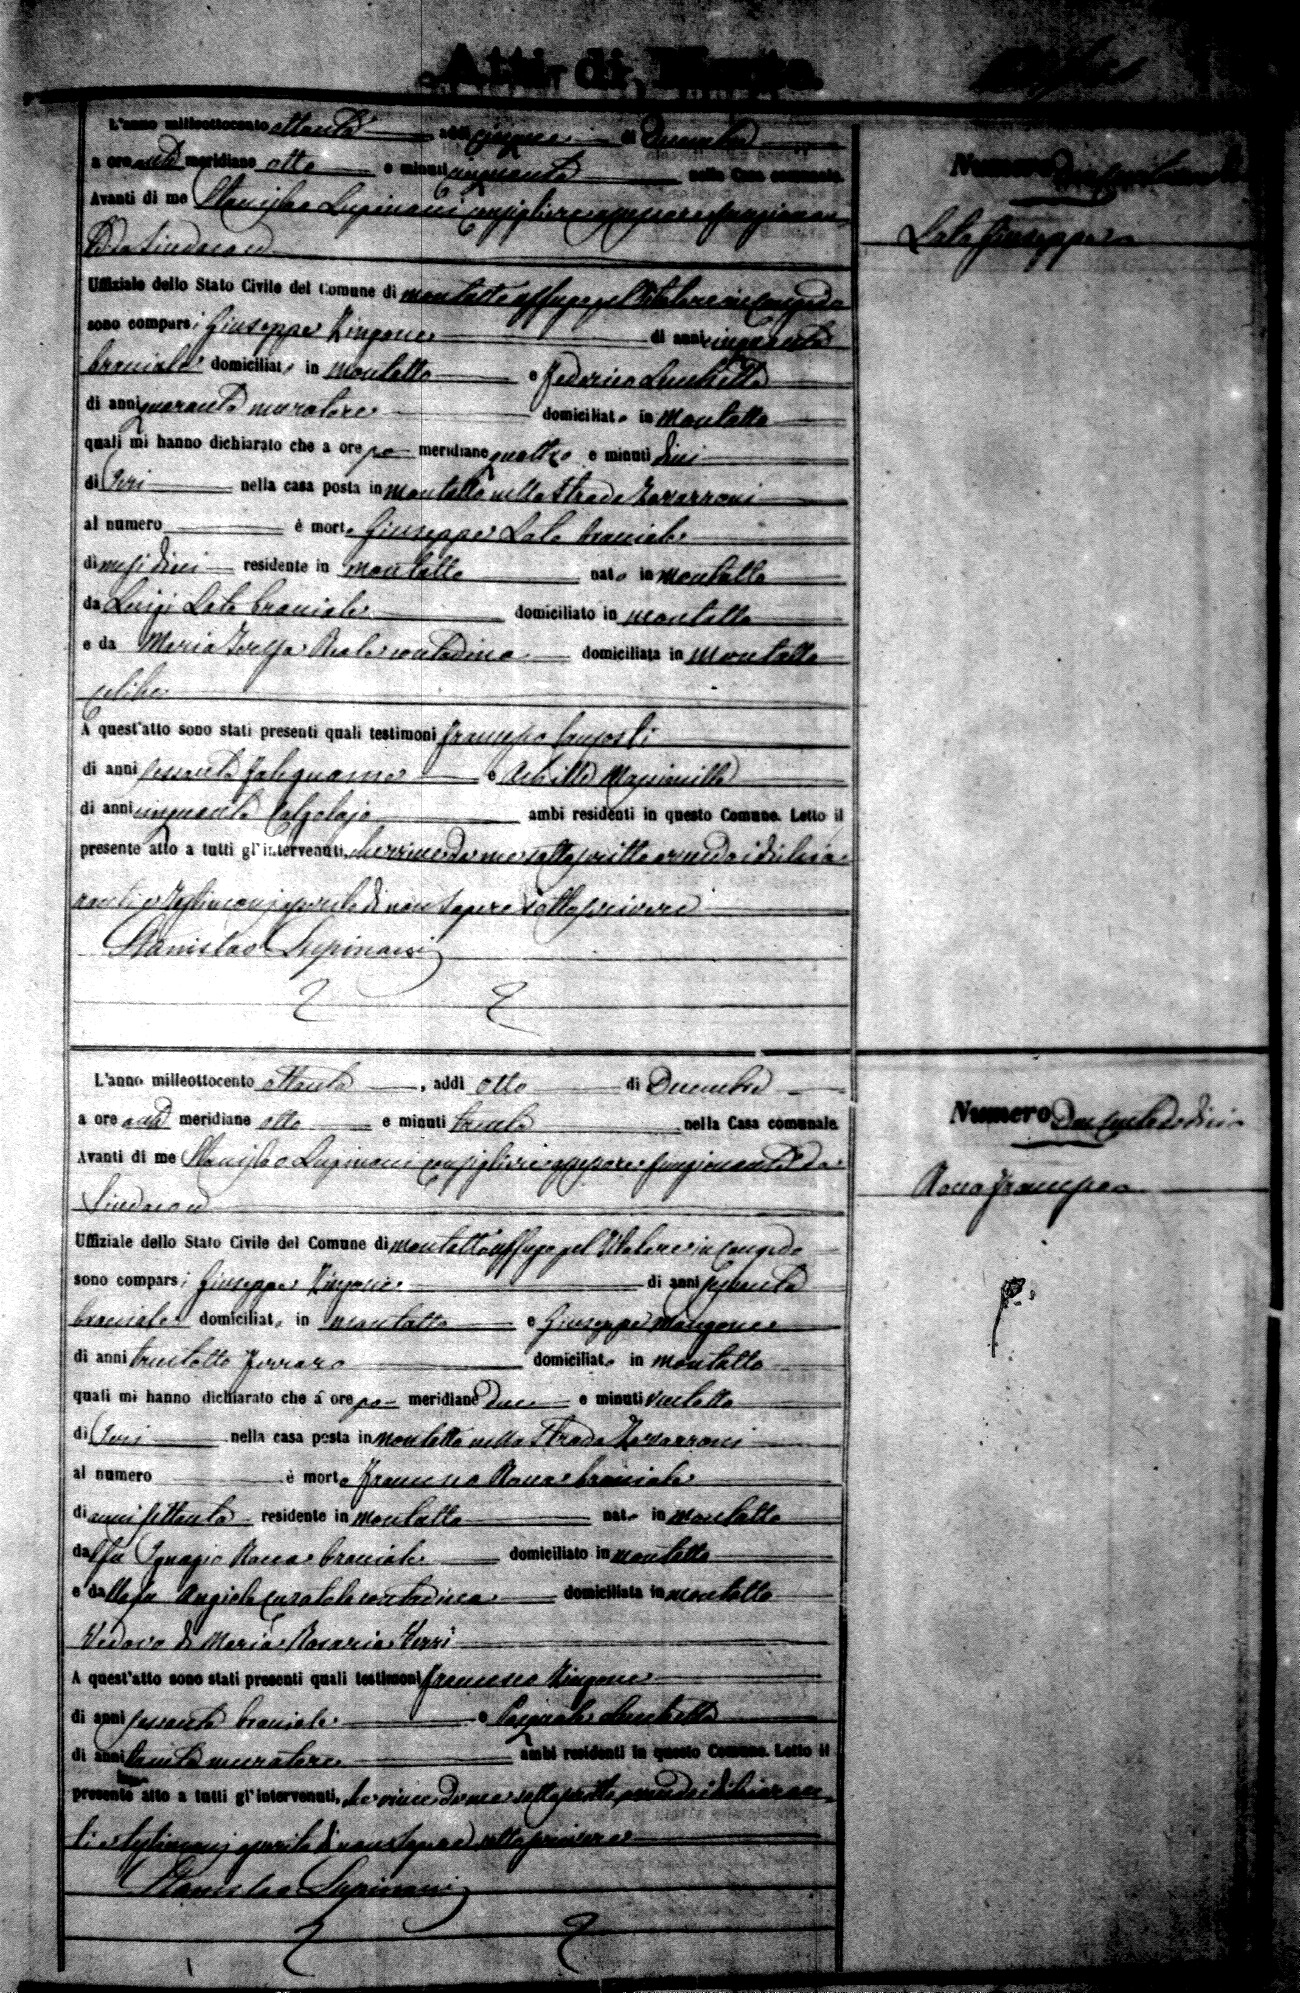 Atti di Morte
L'anno milleottocento ottanta addì cinque di Decembre
a ore ant meridiane otto e minuti cinquanta nella Casa comunale.
Avanti di me Stanislao Lupinacci Consigliere assessore funzionan
te da Sindaco
Uffiziale dello Stato Civile del Comune di Montalto Uffugo pel titolare in congedo
sono comparsi Giuseppe Zingone di anni cinquanta
bracciale domiciliato in Montalto e Federico Lucchetta
di anni quaranta muratore domiciliato in Montalto
quali mi hanno dichiarato che a ore po meridiane quattro e minuti dieci
di Ieri nella casa posta in Montalto nella Strada Zavarroni
al numero è morto Giuseppe Lala bracciale
di mesi dieci residente in Montalto nato in Montalto
da Luigi Lala bracciale domiciliato in Montalto
e da Maria Teresa Reale contadina domiciliata in Montalto
celibe
A quest'atto sono stati presenti quali testimoni Francesco
di anni sessanta falegname e Achille
di anni cinquanta Calzolajo ambi residenti in questo Comune. Letto il
presente atto a tutti gl'intervenuti, che viene da me sottoscritto avendo i dichia
ranti e testimonj asserito di non sapere sottoscrivere
Stanislao Lupinacci
L'anno milleottocento ottanta, addì otto di Decembre
a ore ant meridiane otto e minuti trenta nella Casa comunale.
Avanti di me Stanislao Lupinacci Consigliere assessore funzionante da
Sindaco
Uffiziale dello Stato Civile del Comune di Montalto Uffugo pel titolare in congedo
sono comparsi Giuseppe Zingone di anni sessanta
bracciale domiciliato in Montalto e Giuseppe Mangone
di anni trentotto Ferraro domiciliato in Montalto
quali mi hanno dichiarato che a ore po meridiane due e minuti ventotto
di Ieri nella casa posta in Montalto nella Strada Zavarroni
al numero è morto Francesco Rocca bracciale
di anni settanta residente in Montalto nato in Montalto
dal fu Ignazio Rocca bracciale domiciliato in Montalto
e dalla fu Angiola contadina domiciliata in Montalto
Vedovo di Maria Rosaria Turri
A quest'atto sono stati presenti quali testimoni Francesco Zingone
di anni sessanta bracciale e Pasquale Lucchetta
di anni trenta muratore ambi residenti in questo Comune. Letto il
presente atto a tutti gl'intervenuti, che viene da me sottoscritto, avendo i dichiaran
ti e testimonj asserito di non sapere sottoscrivere
Stanislao Lupinacci
Numero
Lala Giuseppe
Numero Duecentododici
Rocca Francesco